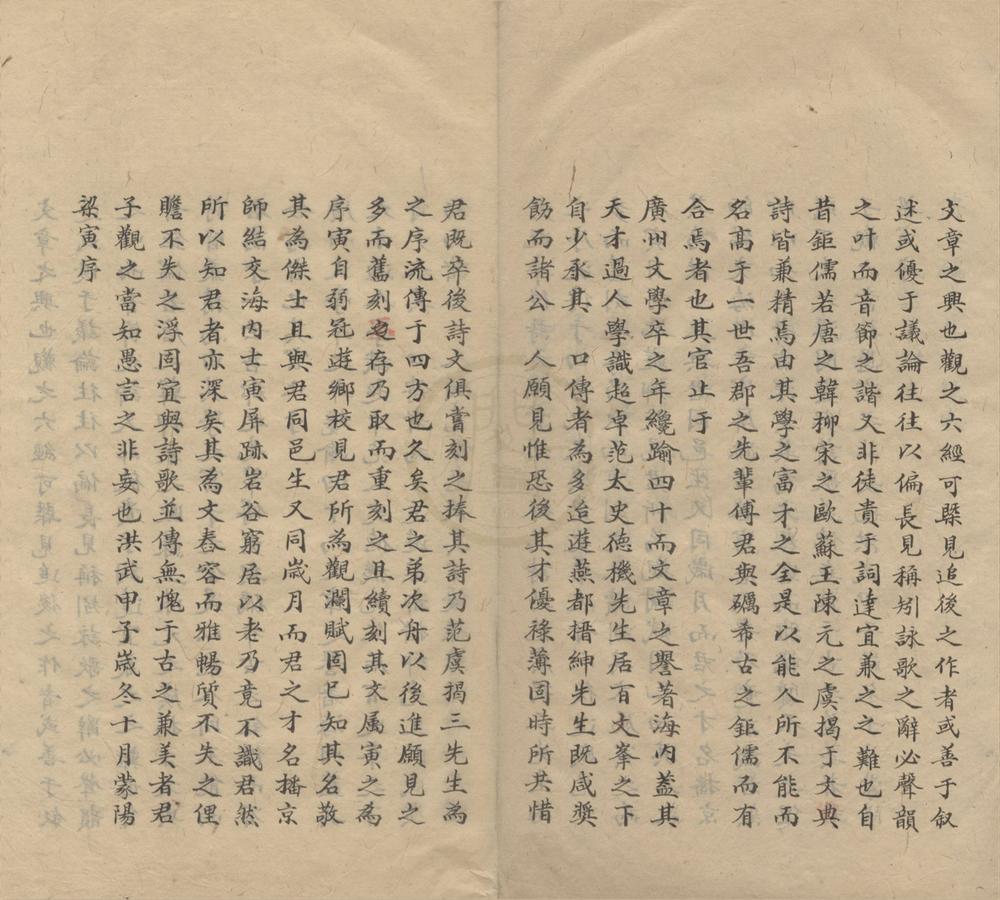 文章之興也觀之六經可槩見追後之作者或善于叙
述或優于議論往往以偏長見稱矧詠歌之辭必聲韻
之叶而音節之諧又非徒貴于詞達宜兼之之難也自
昔鉅儒若唐之韓柳宋之歐蘇王陳元之虞揭于文典
詩皆兼精焉由其學之富才之全是以能人所不能而
名高于一世吾郡之先輩傅君與礪希古之鉅儒而有
合焉者也其官止于
廣州文學卒之年纔踰四十而文章之譽著海内葢其
天才過人學識超卓范太史德機先生居百丈峯之下
自少承其于口傳者為多迨遊燕都搢紳先生既咸奬
飭而諸公人願見惟恐後其才優祿薄同時所共惜
君既卒後詩文俱嘗刻之捧其詩乃范虞揭三先生為
之序流傳于四方也久矣君之弟次舟以後進願見之
多而舊刻存乃取而重刻之且續刻其文属寅之為
序寅自弱冠遊鄉校見君所為觀瀾賦固已知其名敬
其為傑士且與君同邑生又同歲月而君之才名播京
師結交海内士寅屏跡岩谷窮居以老乃竟不識君然
所以知君者亦深矣其為文舂容而雅暢質不失之俚
贍不失之浮固宜與詩歌並傳無愧于古之兼美者君
子觀之當知愚言之非妄也洪武甲子歲冬十月蒙陽
梁寅序